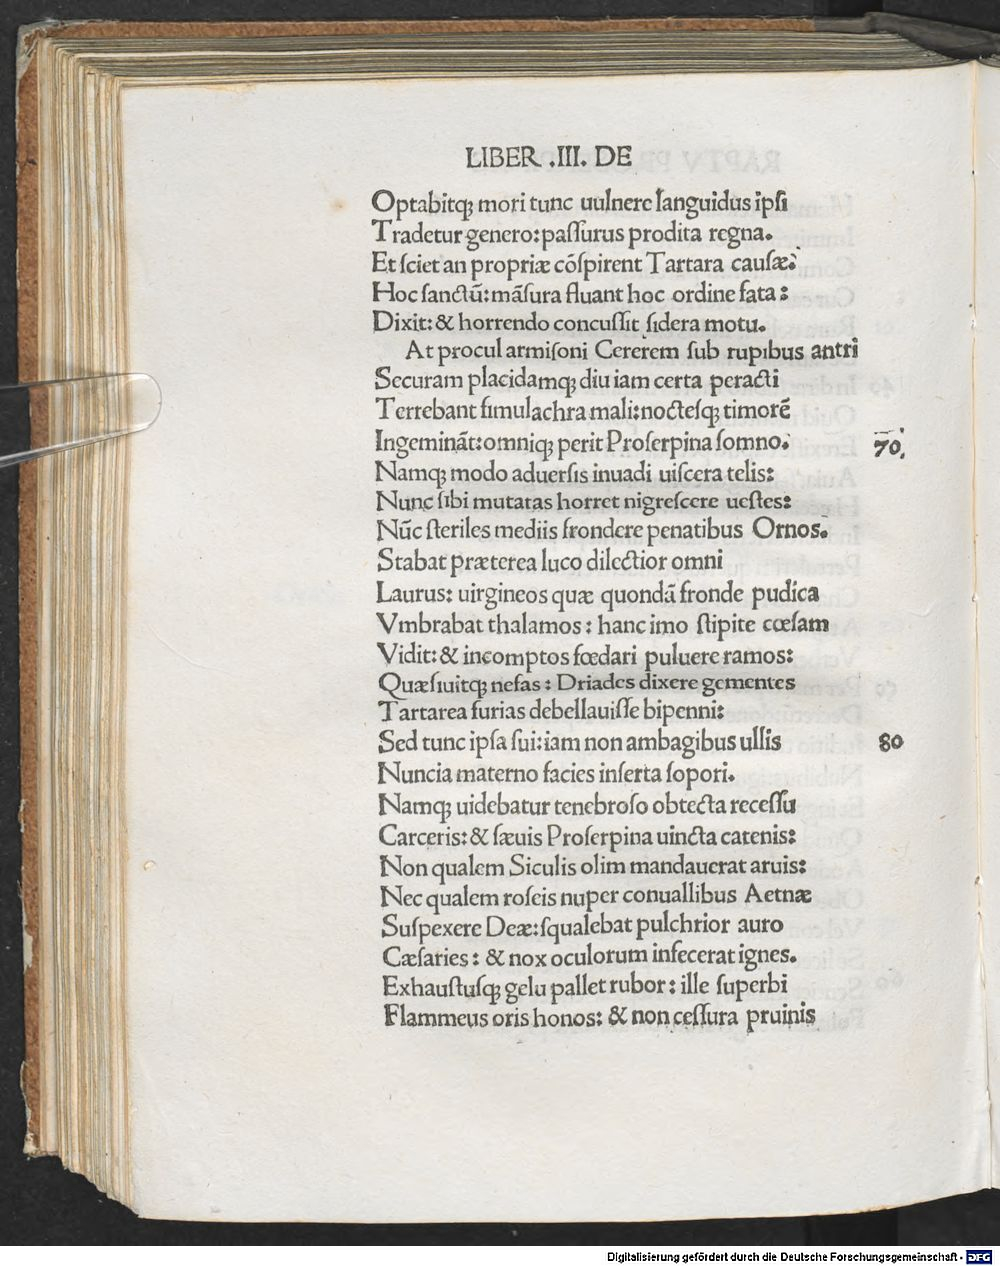 LIBER .III. DE
Optabitqꝫ mori tunc uulnere languidus ipſi
Tradetur genero:paſſurus prodita regna.
Et ſciet an propriæ cõſpirent Tartara cauſæ?
Hoc ſanctũ:mãſura fluant hoc ordine fata:
Dixit:& horrendo concuſſit ſidera motu.
At procul armiſoni Cererem ſub rupibus antri
Securam placidamqꝫ diu iam certa peracti
Terrebant ſimulachra mali:nocteſqꝫ timorẽ
Ingeminãt:omniqꝫ perit Proſerpina ſomno. 70.
Namqꝫ modo aduerſis inuadi uiſcera telis:
Nunc ſibi mutatas horret nigreſcere ueſtes:
Nũc ſteriles mediis frondere penatibus Ornos.
Stabat præterea luco dilectior omni
Laurus: uirgineos quæ quondã fronde pudica
Vmbrabat thalamos: hanc imo ſtipite cœſam
Vidit:& incomptos fœdari puluere ramos:
Quæſiuitqꝫ nefas: Driades dixere gementes
Tartarea furias debellauiſſe bipenni:
Sed tunc ipſa ſui:iam non ambagibus ullis 80
Nuncia materno facies inſerta ſopori.
Namqꝫ uidebatur tenebroſo obtecta receſſu
Carceris:& ſæuis Proſerpina uincta catenis:
Non qualem Siculis olim mandauerat aruis:
Nec qualem roſeis nuper conuallibus Aetnæ
Suſpexere Deæ:ſqualebat pulchrior auro
Cæſaries: & nox oculorum infecerat ignes.
Exhauſtuſqꝫ gelu pallet rubor: ille ſuperbi
Flammeus oris honos: & non ceſſura pruinis
Digitalisierung gefördert durch die Deutsche Forschungsgemeinschaft - DFG